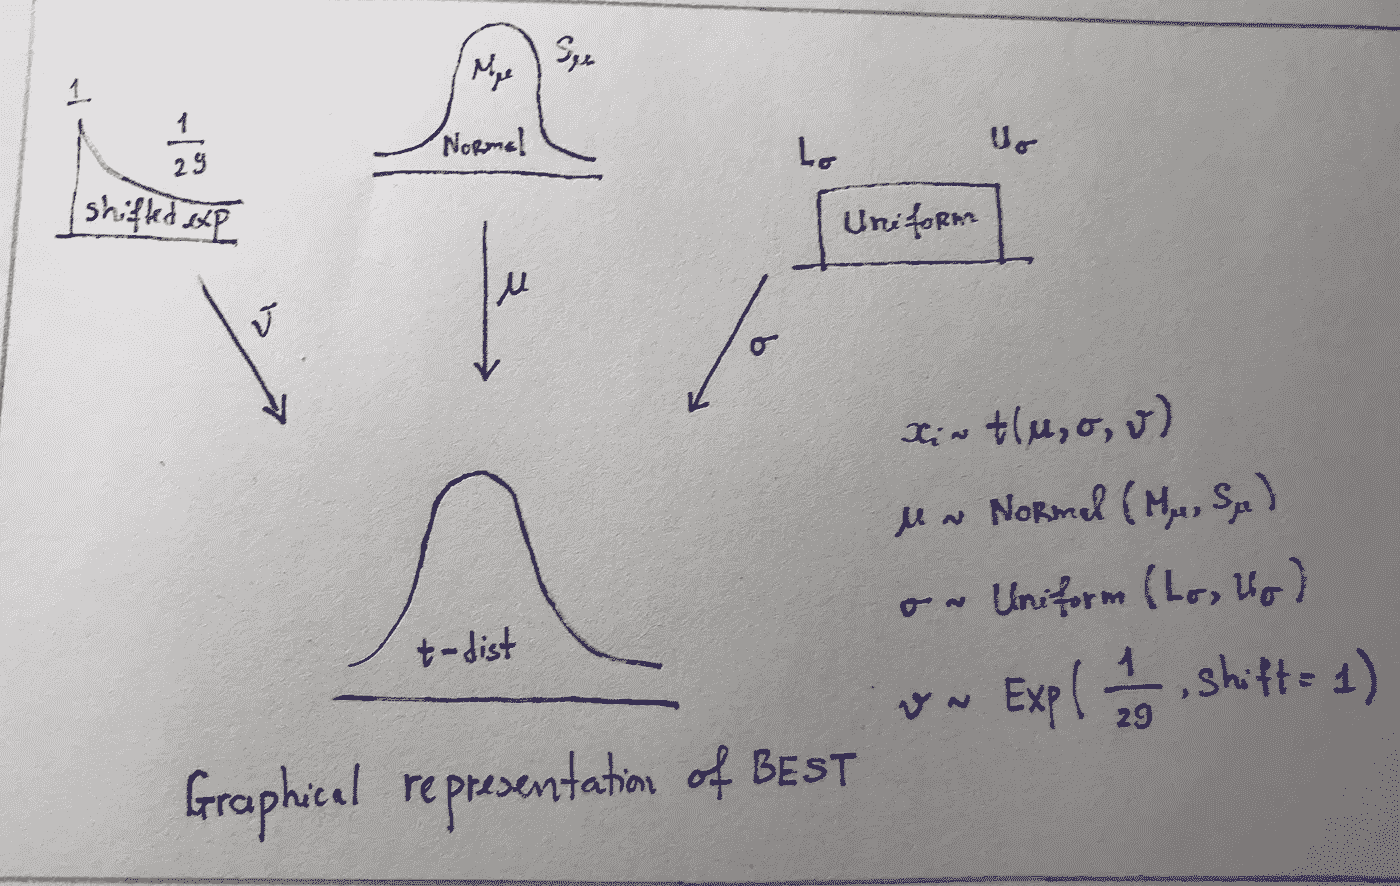 1
1/29
shifted exp
M_μ
S_μ
Normal
L_σ
U_σ
Uniform
ν
μ
σ
t-dist
x_i ~ t(μ, σ, ν)
μ ~ Normal (M_μ, S_μ)
σ ~ Uniform (L_σ, U_σ)
ν ~ Exp( 1/29 , shift = 1)
Graphical representation of BEST